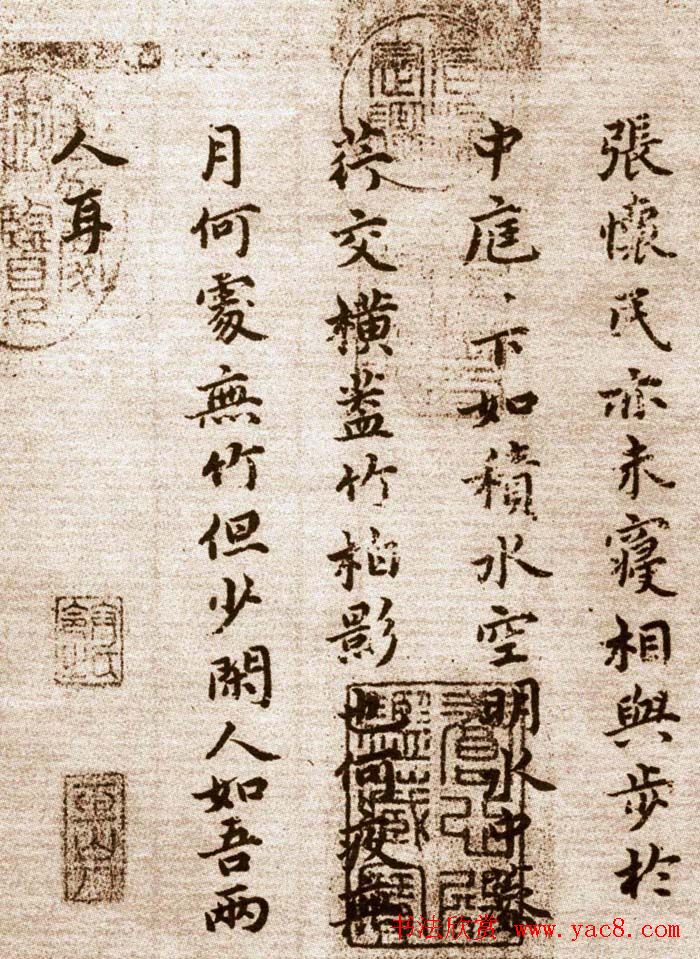 張懷民亦未寢相與步於
中庭、下如積水空明水中藻
荇交橫蓋竹柏影也何夜無
月何處無竹但少閑人如吾兩
人耳
书法欣赏 www.yac8.com